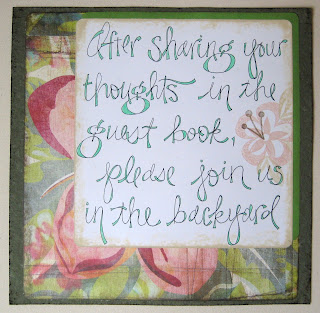 After sharing your
thoughts in the
guest book,
please join us
in the backyard